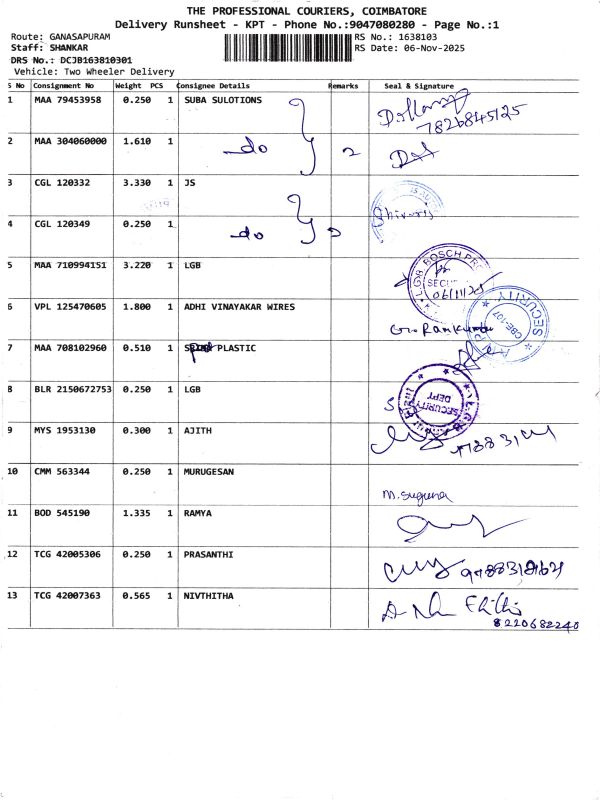 THE PROFESSIONAL COURIERS, COIMBATORE
Delivery Runsheet - KPT - Phone No.:9047080280 - Page No.:1
Route: GANASAPURAM RS No.: 1638103
Staff: SHANKAR RS Date: 06-Nov-2025
DRS No.: DCJB163810301
Vehicle: Two Wheeler Delivery
S No Consignment No Weight PCS Consignee Details Remarks Seal & Signature
1 MAA 79453958 0.250 1 SUBA SULOTIONS
7826845125
2 MAA 304060000 1.610 1 do 2
3 CGL 120332 3.330 1 JS
4 CGL 120349 0.250 1 do 2
5 MAA 710994151 3.220 1 LGB
LGB BOSCH
06/11/25
6 VPL 125470605 1.800 1 ADHI VINAYAKAR WIRES
SECURITY
CBE-107
7 MAA 708102960 0.510 1 PLASTIC
8 BLR 2150672753 0.250 1 LGB
SECURITY
DEPT
9 MYS 1953130 0.300 1 AJITH
10 CMM 563344 0.250 1 MURUGESAN
M. Suguna
11 BOD 545190 1.335 1 RAMYA
12 TCG 42005306 0.250 1 PRASANTHI
13 TCG 42007363 0.565 1 NIVTHITHA
8220682240